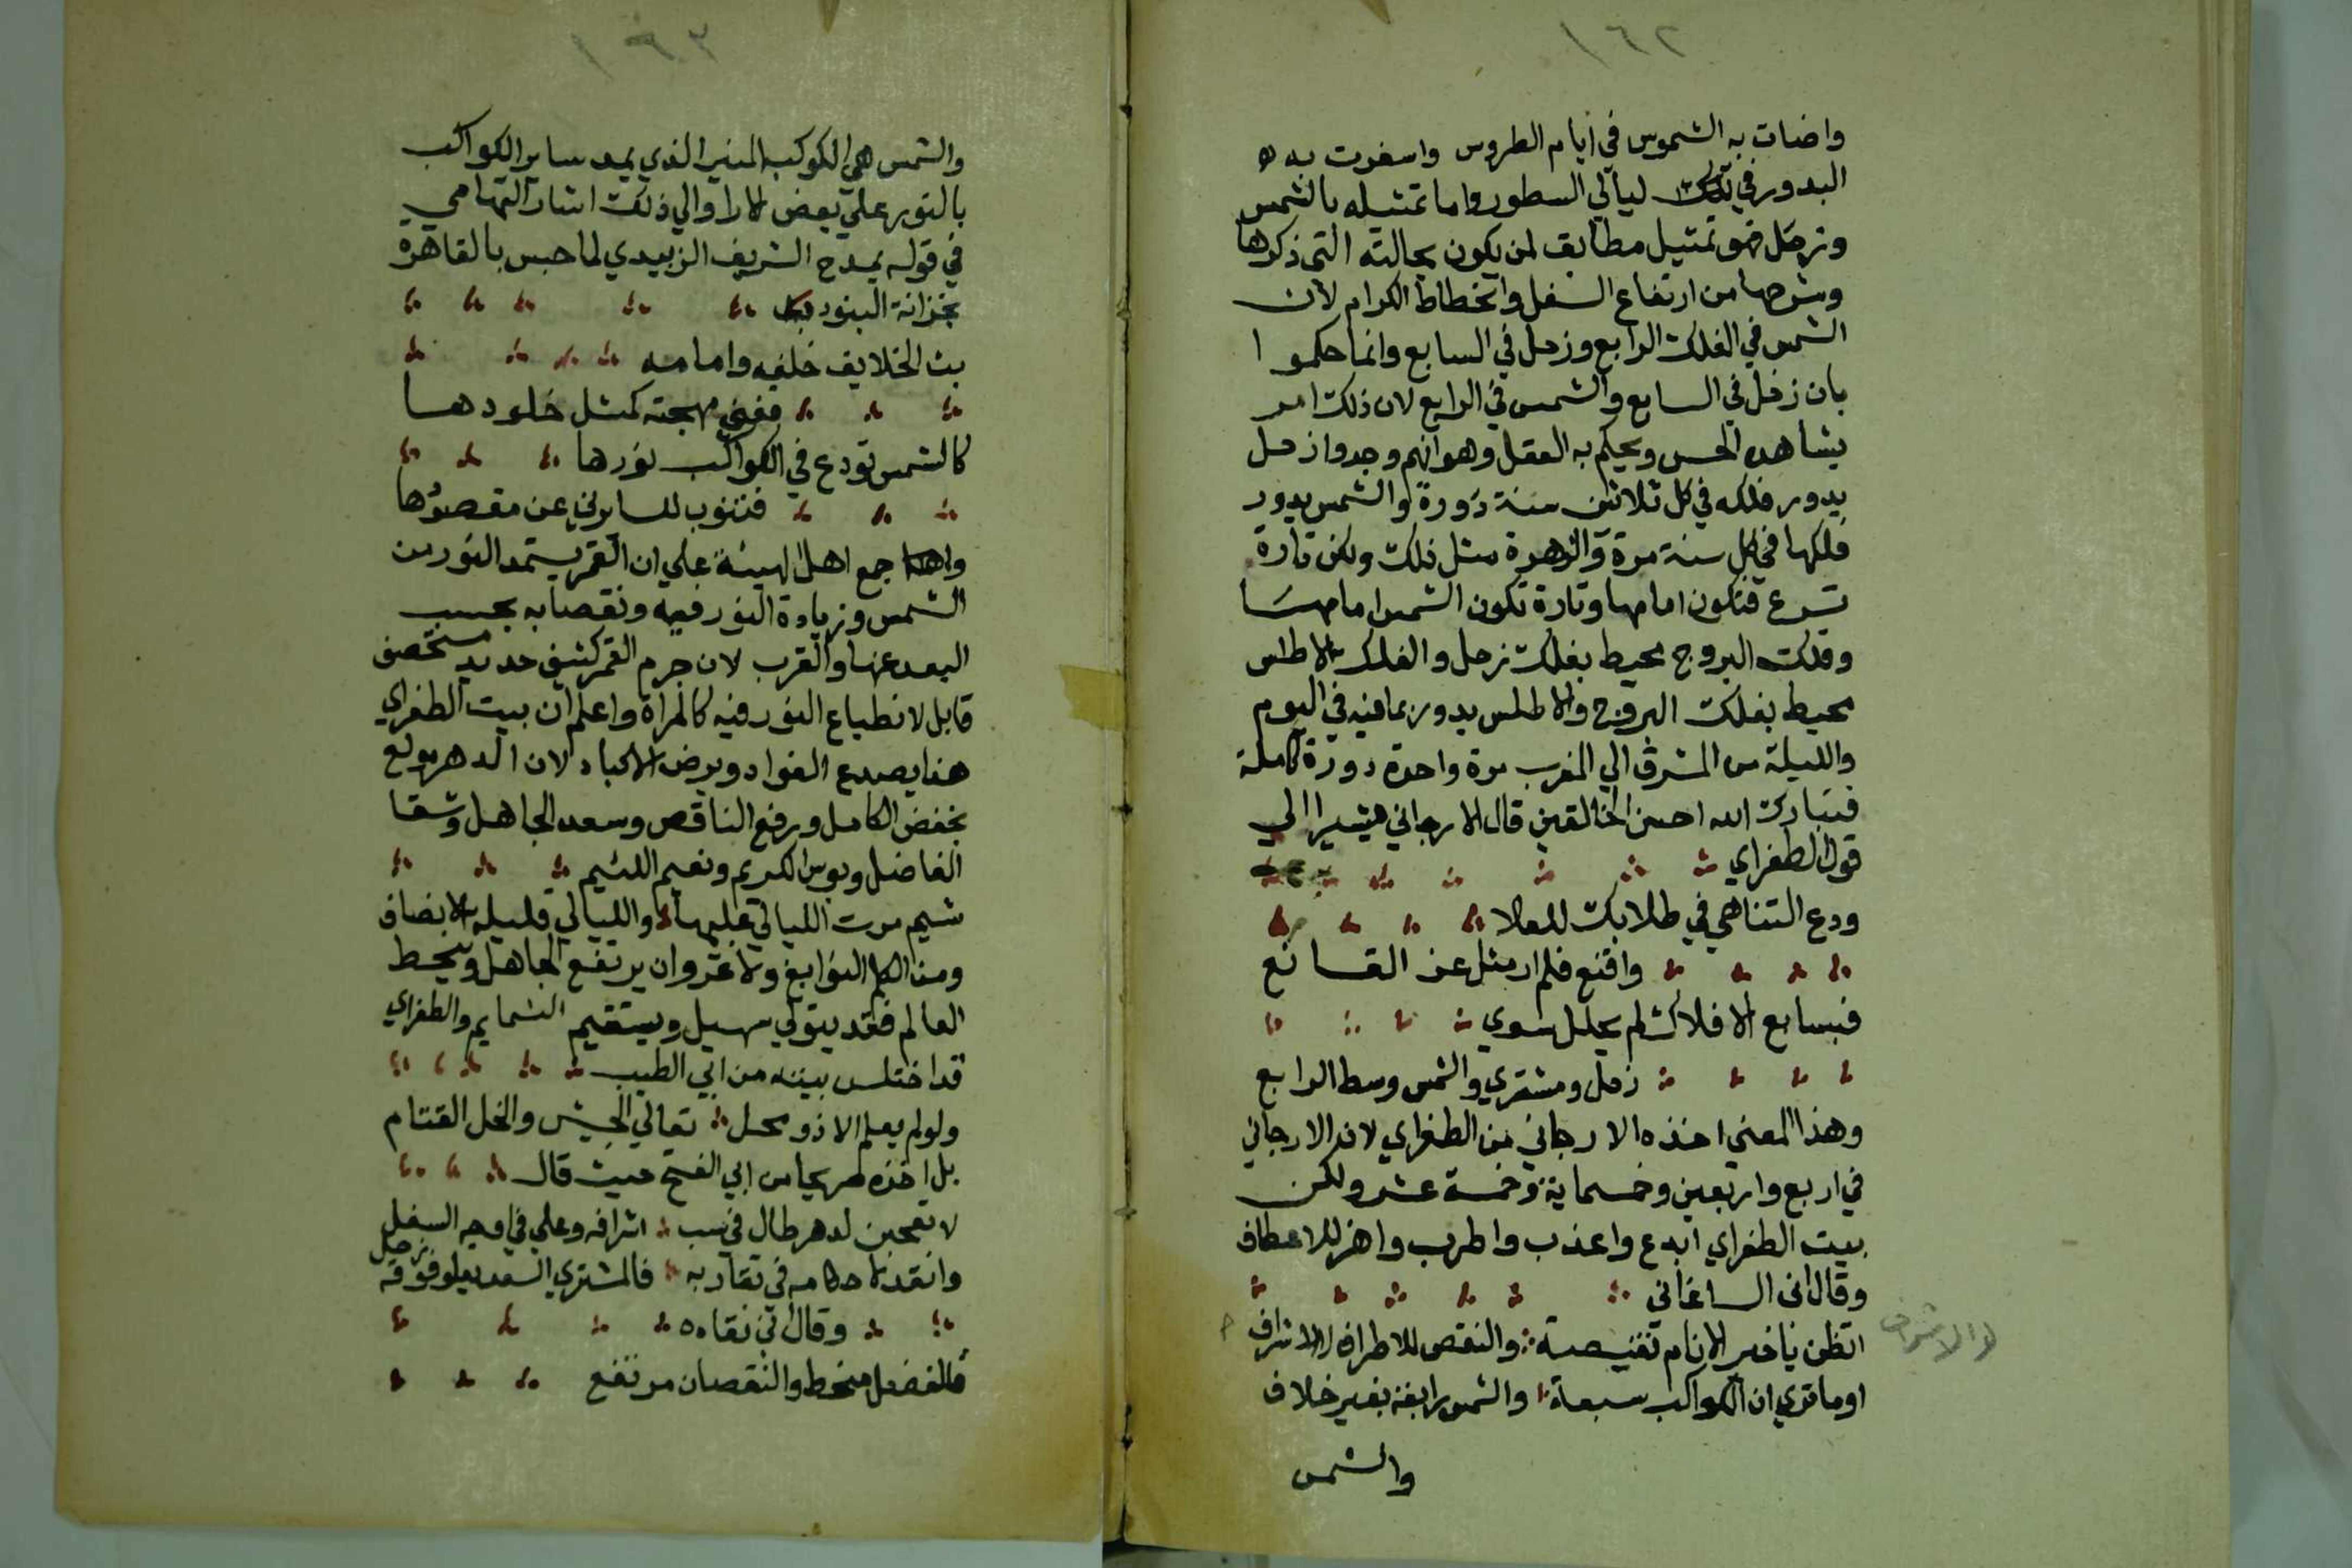 ١٦٢
واضات به الشموس في ايام الطروس واسفرت به
البدور في تلك ليالي السطور واما تمثيله بالشمس
وزحل فهو تمثيل مطابق لمن يكون بحالته التي ذكرها
وشرحها من ارتفاع السفل وانحطاط الكرام لان
الشمس في الفلك الرابع وزحل في السابع وانما حكموا
بان زحل في السابع والشمس في الرابع لان ذلك امر
يشاهده الحس ويحكم به العقل وهو انهم وجدوا زحل
يدور فلكه في كل ثلاثين سنة دورة والشمس يدور
فلكها في كل سنة مرة والزهرة مثل ذلك ولكن تارة
تسرع فتكون امامها وتارة تكون الشمس امامها
وفلك البروج محيط بفلك زحل والفلك الاطلس
محيط بفلك البروج والاطلس يدور بما فيه في اليوم
والليلة من المشرق الي المغرب مرة واحدة دورة كاملة
فتبارك الله احسن الخالقين قال الارجاني مشيرا الي
قول الطغراي
ودع التناهي في طلابك للعلا
واقنع فلم ار مثل عز القانع
فبسابع الافلاك لم يحلل سوي
زحل ومشتري والشمس وسط الرابع
وهذا المعني اخذه الارجاني من الطغراي لان الارجاني
في اربع واربعين وخمسماية وخمسة عشر ولكن
بيت الطغراي ابدع واعذب واطرب واهز للاعطاف
وقال ابن الساعاتي
اتظن ياخير الانام نقيصة والنقص للاطراف لا الاشراف
لا الاشراف
اوما تري ان الكواكب سبعة والشمس رابعة بغير خلاف
والشمس
١٦٣
والشمس هي الكوكب المنير الذي يمد ساير الكواكب
بالنور علي بعض الارا والي ذلك اشار التهامي
في قوله يمدح الشريف الزبيدي لما حبس بالقاهرة
بخزانة البنود
بث الخلايف خلفه وامامه
ففني مهجته كمثل خلودها
كالشمس تودع في الكواكب نورها
فتنوب للساري عن مقصودها
واجمع اهل الهيئة علي ان القمر يستمد النور من
الشمس وزيادة النور فيه ونقصانه بحسب
البعد عنها والقرب لان جرم القمر كثيف حديد مستحصف
قابل لانطباع النور فيه كالمراة واعلم ان بيت الطغراي
هذا يصدع الفواد ويرض الاكباد لان الدهر مولع
بخفض الكامل ورفع الناقص وسعد الجاهل وشقا
الفاضل وبوس الكريم ونعيم اللئيم
شيم مرت الليالي عليها والليالي قليلة الانصاف
ومن الكلم النوابغ ولا غرو ان يرتفع الجاهل وينحط
العالم فقد يتولي سهيل ويستقيم الشمايم والطغراي
قد اختلس بيته من ابي الطيب
ولو لم يعلم الا ذو محل تعالي الجيش وانحل القتام
بل اخذه صريحا من ابي الفتح حيث قال
لا تعجبن لدهر طال في سبب اشرافه وعلي في اوجه السفل
وانقد لاحكامه في تقاربه فالمشتري السعد يعلو فوقه زحل
وقال ابن نقاده
فالفضل منحط والنقصان مرتفع